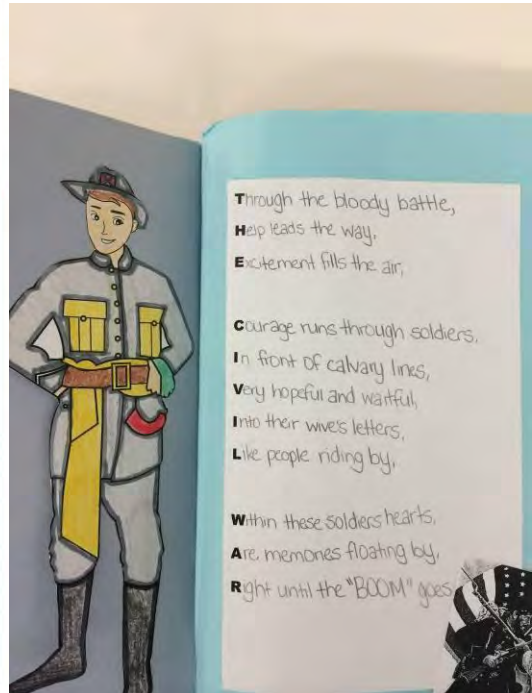 Through the bloody battle,
Help leads the way,
Excitement fills the air,
Courage runs through soldiers,
In front of calvary lines,
Very hopeful and waitful,
Into their wive's letters,
Like people riding by,
Within these soldiers hearts,
Are memories floating by,
Right until the "BOOM" goes